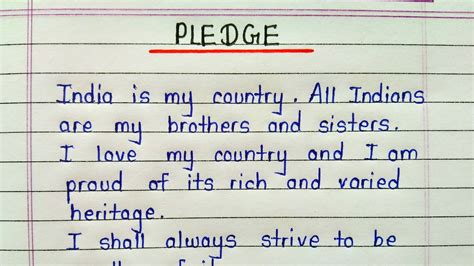 PLEDGE
India is my country. All Indians
are my brothers and sisters.
I love my country and I am
proud of its rich and varied
heritage.
I shall always strive to be